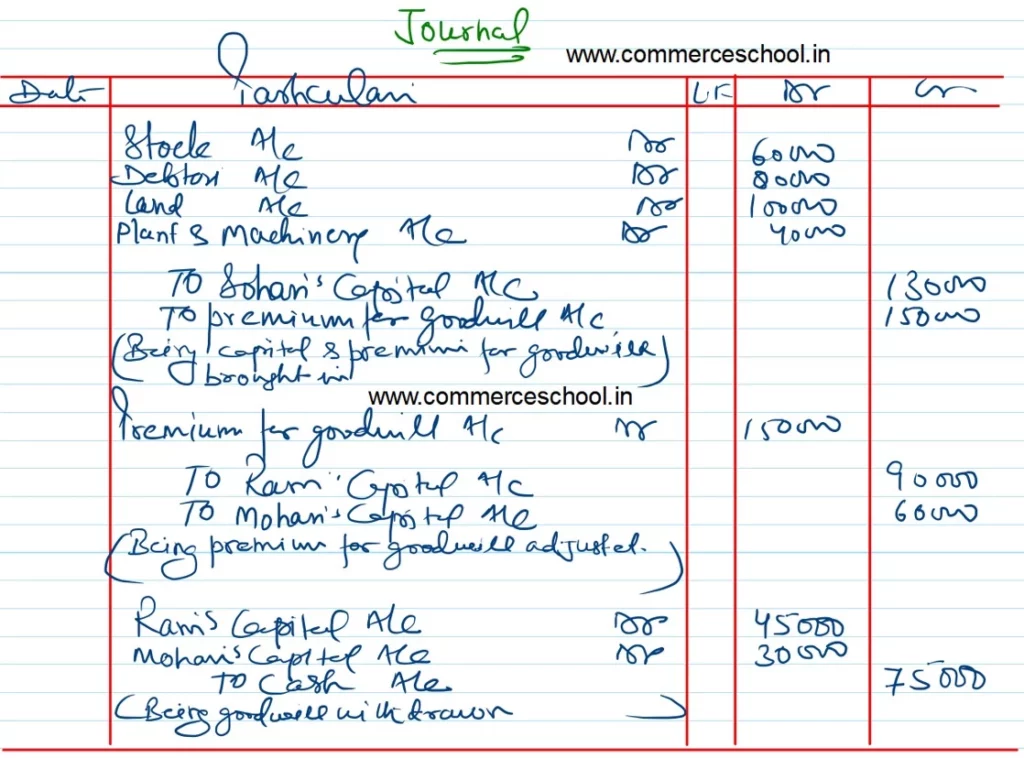 Journal
www.commerceschool.in
Date Particulars L.F Dr Cr
Stock A/c Dr 60000
Debtors A/c Dr 80000
Land A/c Dr 100000
Plant & Machinery A/c Dr 40000
To Sohan's Capital A/C 130000
To premium for goodwill A/C 150000
(Being capital & premium for goodwill
brought in)
www.commerceschool.in
Premium for goodwill A/c Dr 150000
To Ram's Capital A/C 90000
To Mohan's Capital A/c 60000
(Being premium for goodwill adjusted.)
Ram's Capital A/c Dr 45000
Mohan's Capital A/c Dr 30000
To Cash A/c 75000
(Being goodwill withdrawn)